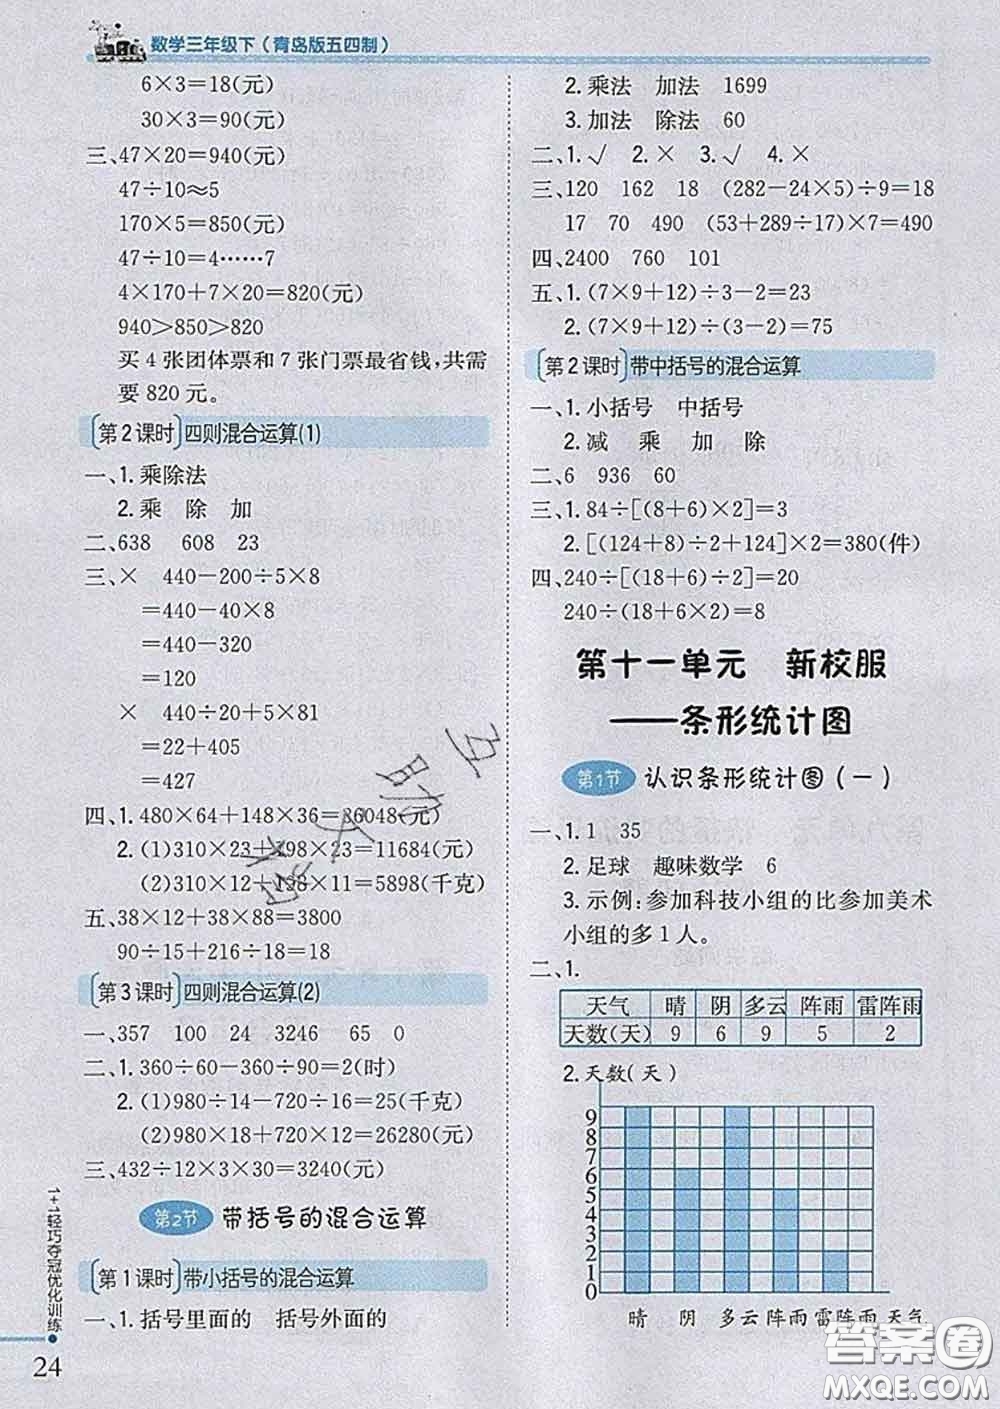 数学三年级下(青岛版五四制)
6×3=18(元)
30×3=90(元)
三、47×20=940(元)
47÷10≈5
170×5=850(元)
47÷10=4……7
4×170+7×20=820(元)
940>850>820
买 4 张团体票和 7 张门票最省钱,共需
要 820 元。
第2课时 四则混合运算(1)
一、1.乘除法
2.乘 除 加
二、638 608 23
三、× 440-200÷5×8
=440-40×8
=440-320
=120
× 440÷20+5×81
=22+405
=427
四、1.480×64+148×36=36048(元)
2.(1)310×23+198×23=11684(元)
(2)310×12+198×11=5898(千克)
五、38×12+38×88=3800
90÷15+216÷18=18
第3课时 四则混合运算(2)
一、357 100 24 3246 65 0
二、1.360÷60-360÷90=2(时)
2.(1)980÷14-720÷16=25(千克)
(2)980×18+720×12=26280(元)
三、432÷12×3×30=3240(元)
第2节 带括号的混合运算
第1课时 带小括号的混合运算
一、1.括号里面的 括号外面的
2.乘法 加法 1699
3.加法 除法 60
二、1.√ 2.× 3.√ 4.×
三、120 162 18 (282-24×5)÷9=18
17 70 490 (53+289÷17)×7=490
四、2400 760 101
五、1.(7×9+12)÷3-2=23
2.(7×9+12)÷(3-2)=75
第2课时 带中括号的混合运算
一、1.小括号 中括号
2.减 乘 加 除
二、6 936 60
三、1.84÷[(8+6)×2]=3
2.[(124+8)÷2+124]×2=380(件)
四、240÷[(18+6)÷2]=20
240÷(18+6×2)=8
第十一单元 新校服
——条形统计图
第1节 认识条形统计图(一)
一、1.1 35
2.足球 趣味数学 6
3.示例:参加科技小组的比参加美术
小组的多1人。
二、1.
天气 晴 阴 多云 阵雨 雷阵雨
天数(天) 9 6 9 5 2
2.天数(天)
9
8
7
6
5
4
3
2
1
0
晴 阴 多云 阵雨 雷阵雨 天气
1+1轻巧夺冠优化训练
24
互助文档
答案圈
MXQE.COM